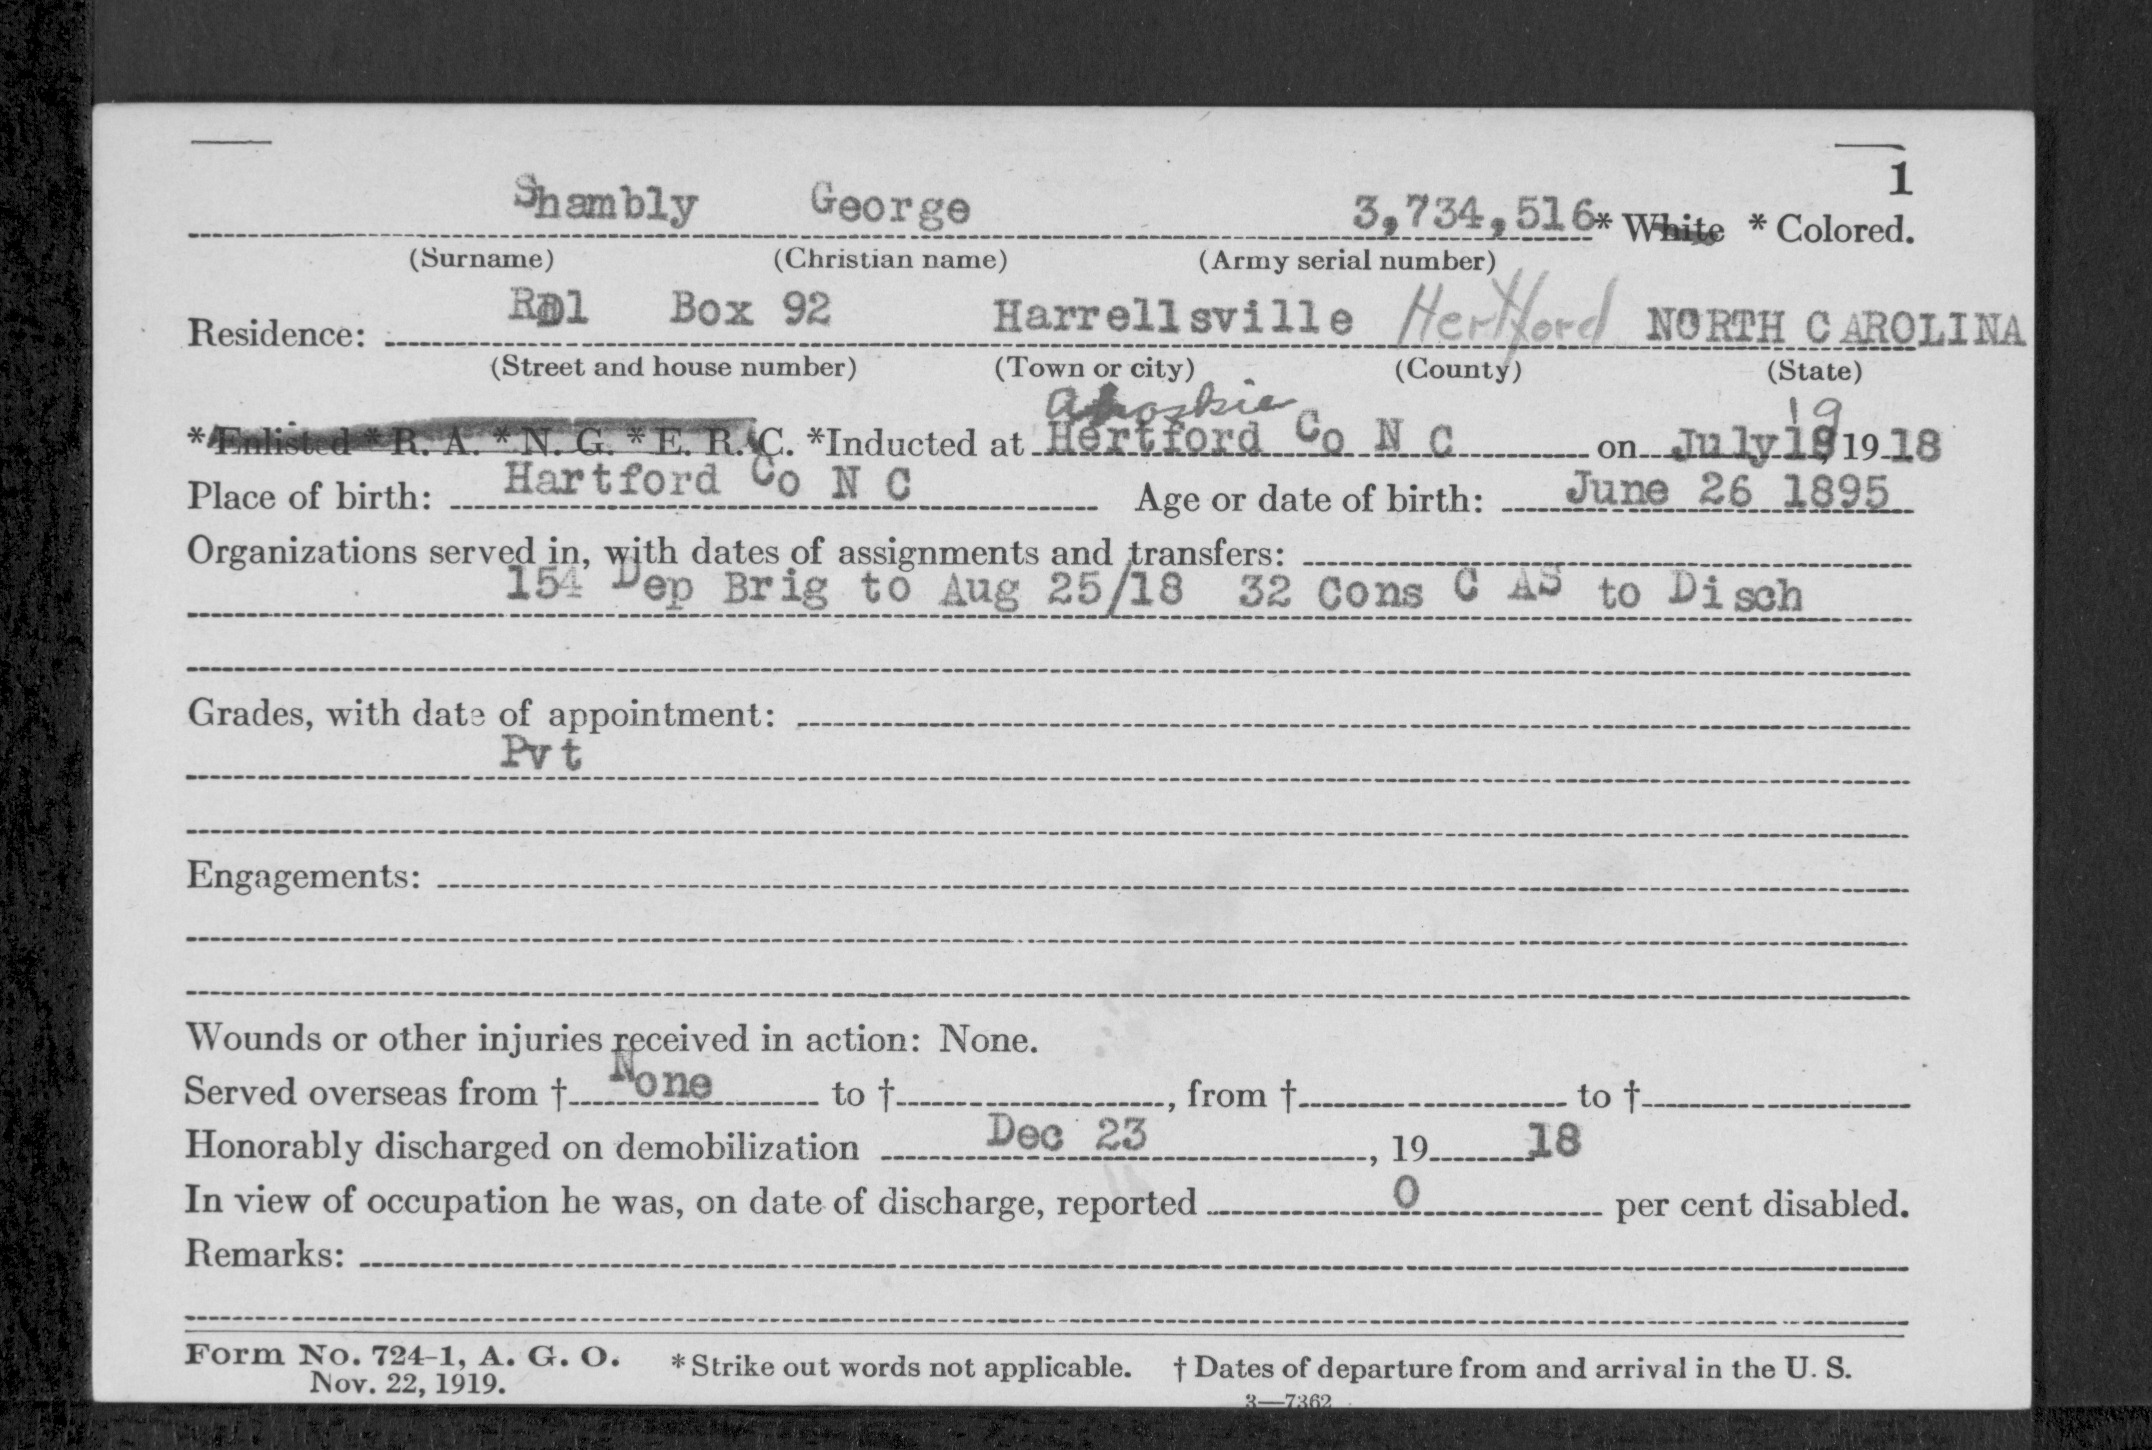 1
Shambly George 3,734,516 * White * Colored.
(Surname) (Christian name) (Army serial number)
Residence: RD1 Box 92 Harrellsville Hertford NORTH CAROLINA
(Street and house number) (Town or city) (County) (State)
Ahoskie 19
*Enlisted * R. A. * N. G. * E. R. C. *Inducted at Hertford Co N C on July 18, 1918
Place of birth: Hartford Co N C Age or date of birth: June 26 1895
Organizations served in, with dates of assignments and transfers:
154 Dep Brig to Aug 25/18 32 Cons C AS to Disch
Grades, with date of appointment:
Pvt
Engagements:
Wounds or other injuries received in action: None.
Served overseas from † None to †, from † to †
Honorably discharged on demobilization Dec 23, 19 18
In view of occupation he was, on date of discharge, reported 0 per cent disabled.
Remarks:
Form No. 724-1, A. G. O. * Strike out words not applicable. † Dates of departure from and arrival in the U. S.
Nov. 22, 1919.
3—7362